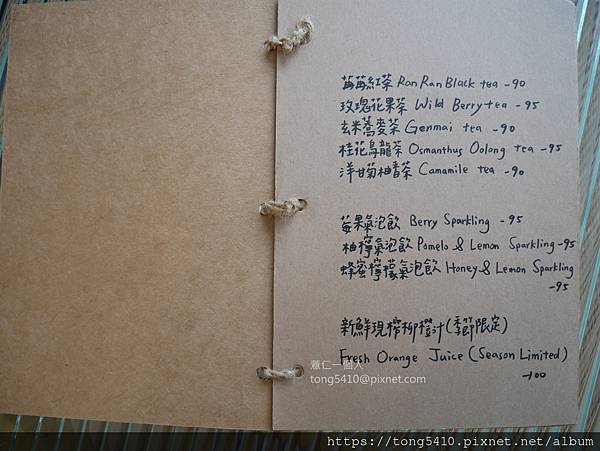 苒苒紅茶 Ran Ran Black tea -90
玫瑰花果茶 Wild Berry tea -95
玄米蕎麥茶 Genmai tea -90
桂花烏龍茶 Osmanthus Oolong tea -95
洋甘菊柚香茶 Camamile tea -90
莓果氣泡飲 Berry Sparkling -95
柚檸氣泡飲 Pomelo & Lemon Sparkling -95
蜂蜜檸檬氣泡飲 Honey & Lemon Sparkling
-95
新鮮現榨柳橙汁(季節限定)
Fresh Orange Juice (Season Limited)
-100
薏仁一個人
tong5410@pixnet.com
https://tong5410.pixnet.net/album